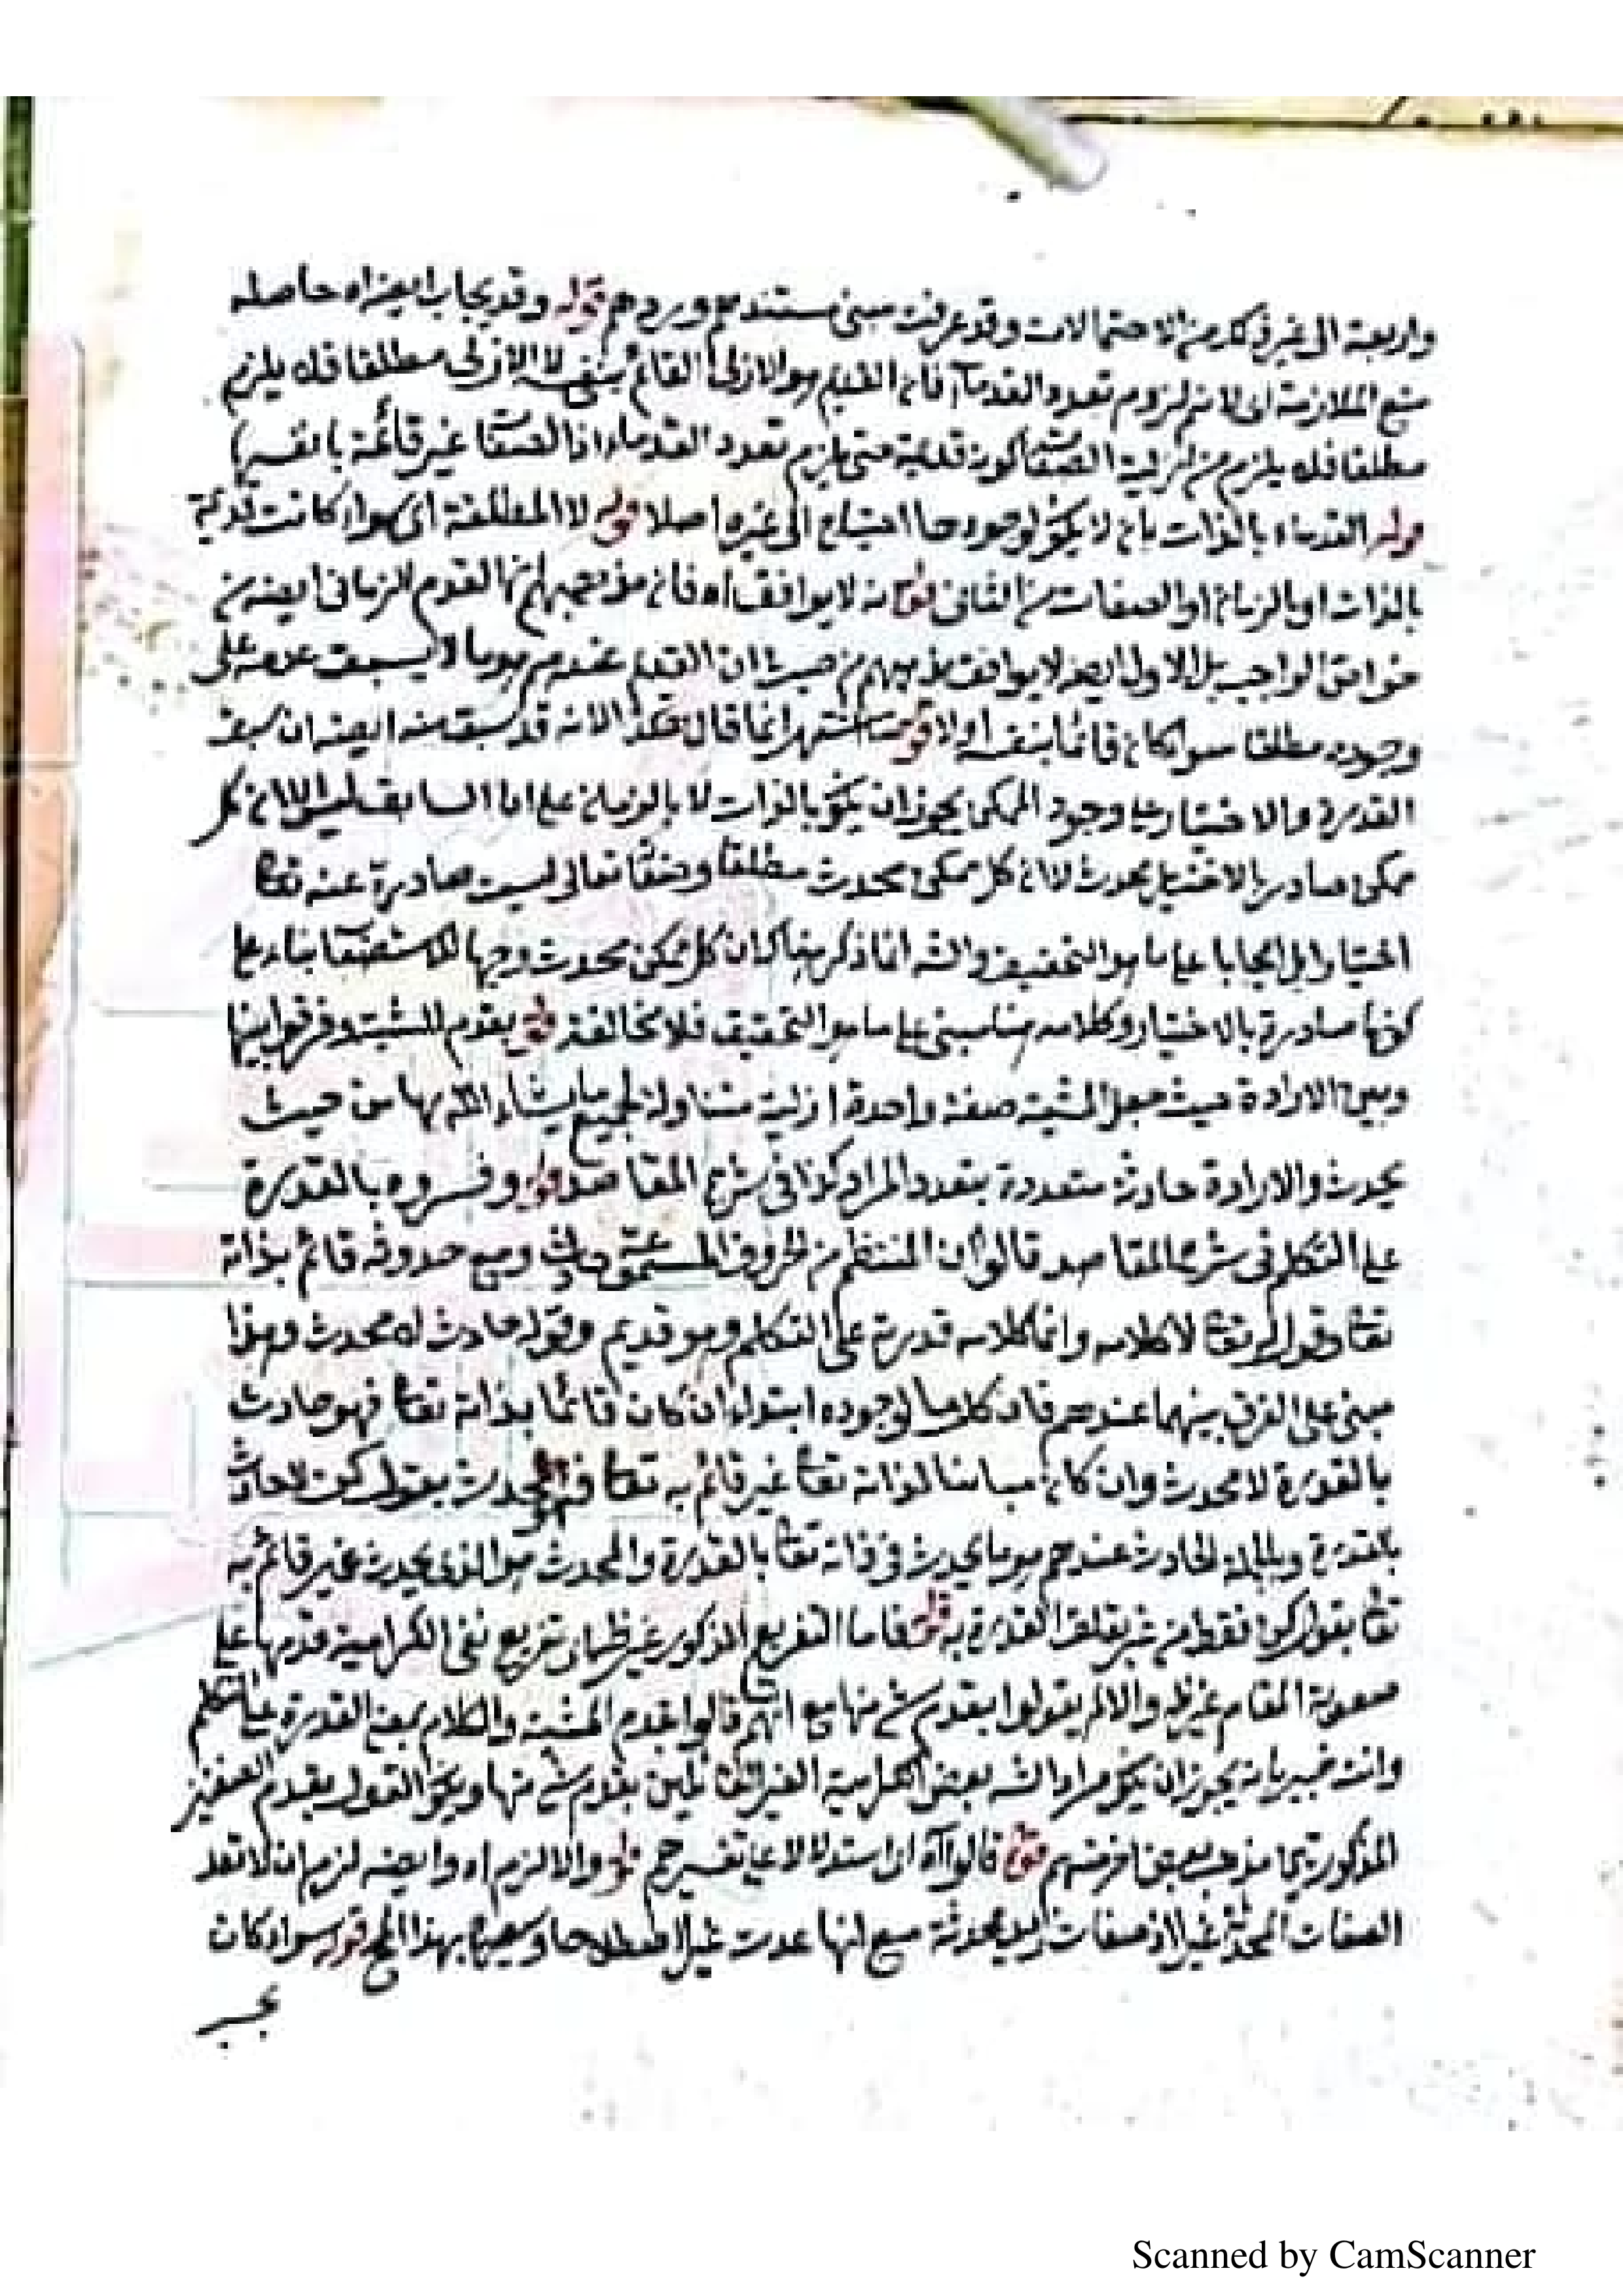 واربعة الى غير ذلك من الاحتمالات وقد عرفت مبنى مستندهم وردهم قوله وقد يجاب ايضا اه حاصله
منع الملازمة اى لا نم لزوم تعدد القدماء فان القديم هو الازلى القائم بنفسه لا الازلى مطلقا فلا يلزم
مطلقا فلا يلزم من ازلية الصفات كونه قديمة حتى يلزم تعدد القدماء اذ الصفات غير قائمة بانفسها
قوله القدماء بالذات بان لا يكون لوجودها احتياج الى غيره اصلا قوله لا المطلقة اى سواء كانت قديمة
بالذات او بالزمان او الصفات من الثانى قوله لا يوافق اه فان مذهبهم انها القدم الزمانى ايضا من
خواص الواجب بل الاول ايضا لا يوافق مذهبهم من حيث ان القديم عندهم هو ما لا يسبق عدمه على
وجوده مطلقا سواء كان قائما بنفسه او لا قوله انما قال هذا لانه قد سبق منه ايضا ان سبق
القدرة والاختيار على وجود الممكن يجوز ان يكون بالذات لا بالزمان على ان السابق ليس الا ان كل
ممكن صادر بالاختيار محدث لا ان كل ممكن محدث مطلقا وصفات تعالى ليست صادرة عنه تعالى
اختيارا بل ايجابا على ما هو التحقيق والشه انما ذكر هناك ان كل ممكن محدث وجها للاستصعاب بناء على
كونها صادرة بالاختيار وكلامه هنا مبنى على ما هو التحقيق فلا مخالفة قوله بقدم المشية وفرقوا بينها
وبين الارادة حيث جعل المشية صفة واحدة ازلية متناولة لجميع ما يشاء الله بها من حيث
يحدث والارادة حادثة متعددة بتعدد المراد كذا فى شرح المقاصد قوله وفسروه بالقدرة
على التكلم فى شرح المقاصد قالوا ان المنتظم من الحروف المسموعة حادث ومع حدوثه قائم بذاته
تعالى وقول له تعالى لا كلامه وانما كلامه قدرته على التكلم وهو قديم وقوله حادث لا محدث وهذا
مبنى على الفرق بينهما عندهم فان كل ما لوجوده ابتداء ان كان قائما بذاته تعالى فهو حادث
بالقدرة لا محدث وان كان مباينا لذاته تعالى غير قائم به تعالى فهو المحدث بقوله كن لا حادث
بالقدرة وبالجملة الحادث عندهم هو ما يحدث فى ذاته تعالى بالقدرة والمحدث هو الذى يحدث غير قائم به
تعالى بقوله كن فقط من غير تعلق القدرة به قوله فاما التفريع المذكور غير ظاهر تفريع نفى الكرامية قدمها على
صعوبة المقام غير ظ والا لم يقولوا بقدم شئ منها مع انهم قالوا بقدم المشية والكلام بمعنى القدرة على التكلم
وانت خبير بانه يجوز ان يكون مراد الشه بعض الكرامية الغير القائلين بقدم شئ منها ويكون القول بقدم الصفتين
المذكورتين مذهب بعض اخر منهم قوله قالوا اه اى استدلالا على تفسيرهم قوله والا لزم اه وايضا لزم ان لا تعد
الصفات المحدثة غيرا اذ صفات زيد محدثة مع انها عدت غيرا اصطلاحا بهذا المعنى قوله سواء كان